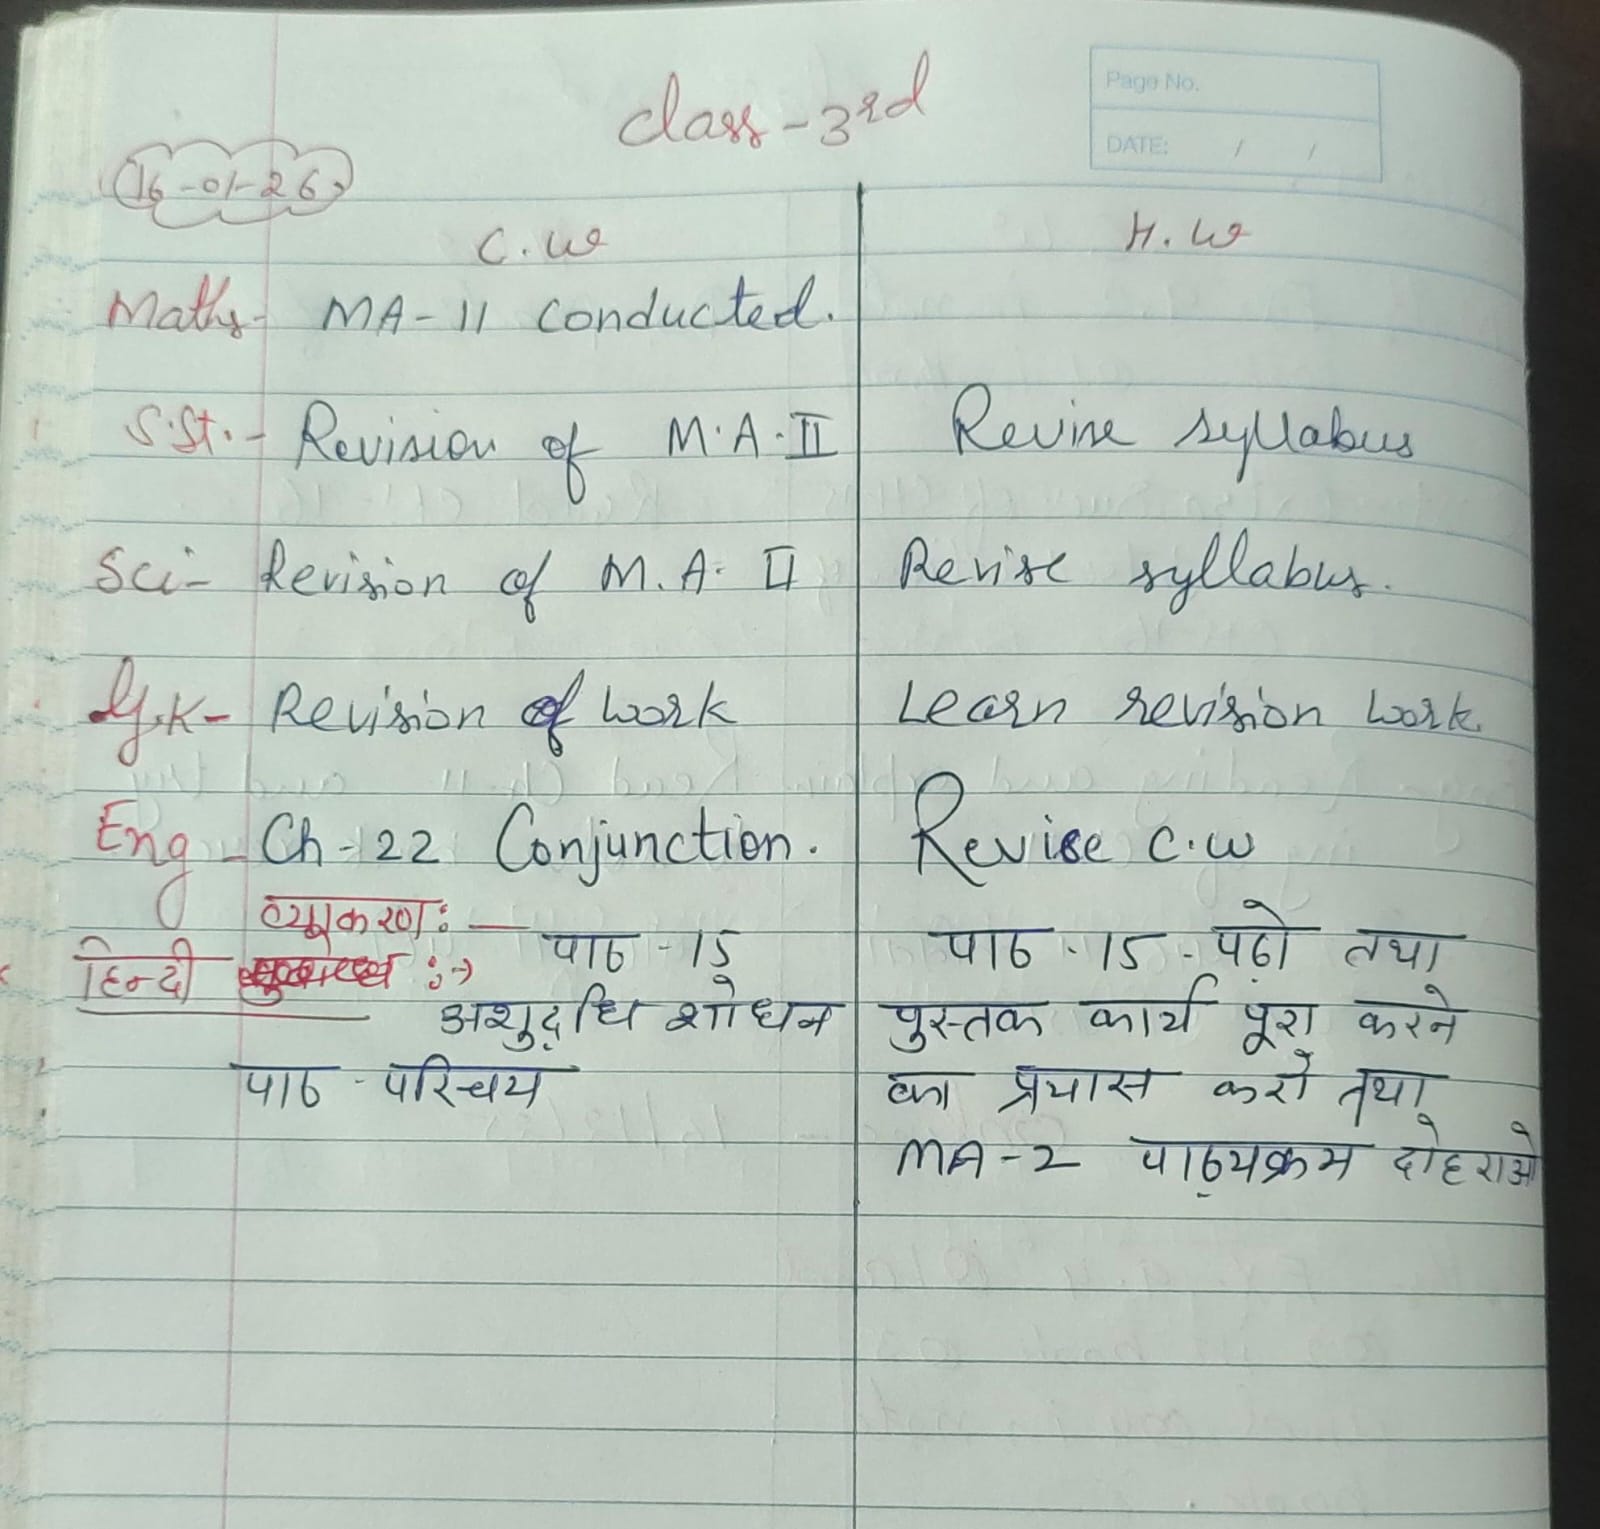 class - 3rd
Page No.
DATE: / /
16-01-26
C.W H.W
Maths- MA-11 conducted.
S.St.- Revision of M.A.II Revise syllabus
Sci- Revision of M.A. II Revise syllabus.
G.K- Revision of work Learn revision work.
Eng - Ch-22 Conjunction. Revise C.W
व्याकरण : —
हिन्दी :→ पाठ -15 पाठ - 15 - पढ़ो तथा
अशुद्धि शोधन पुस्तक कार्य पूरा करने
पाठ - परिचय का प्रयास करो तथा
MA-2 पाठ्यक्रम दोहराओ